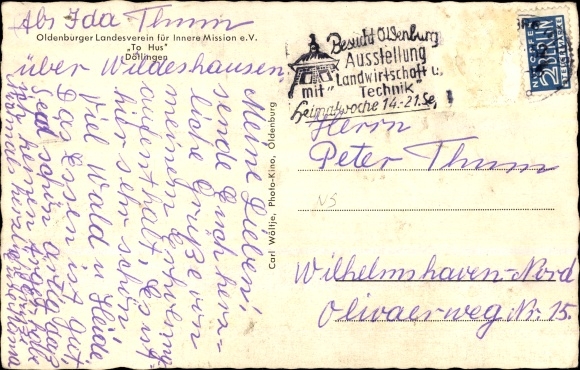 Abs Ida Thumm
Oldenburger Landesverein für Innere Mission e.V.
„To Hus"
Dötlingen
über Wildeshausen
Meine Lieben,
sende Euch herz-
liche Grüße von
meinem Erholungs-
aufenthalt, Es ist
hier sehr schön,
Viel Wald u Heide,
Das Essen ist gut,
Seid schön artig
Carl Wöltje, Photo-Kino, Oldenburg
Besucht Oldenburg
Ausstellung
mit Landwirtschaft u.
Technik
Heimatwoche 14.-21. Se
NOTOPFER
2 BERLIN
STEUERMARKE
Herrn
Peter Thumm
NS
Wilhelmshaven-Nord
Olivaerweg Nr. 15.